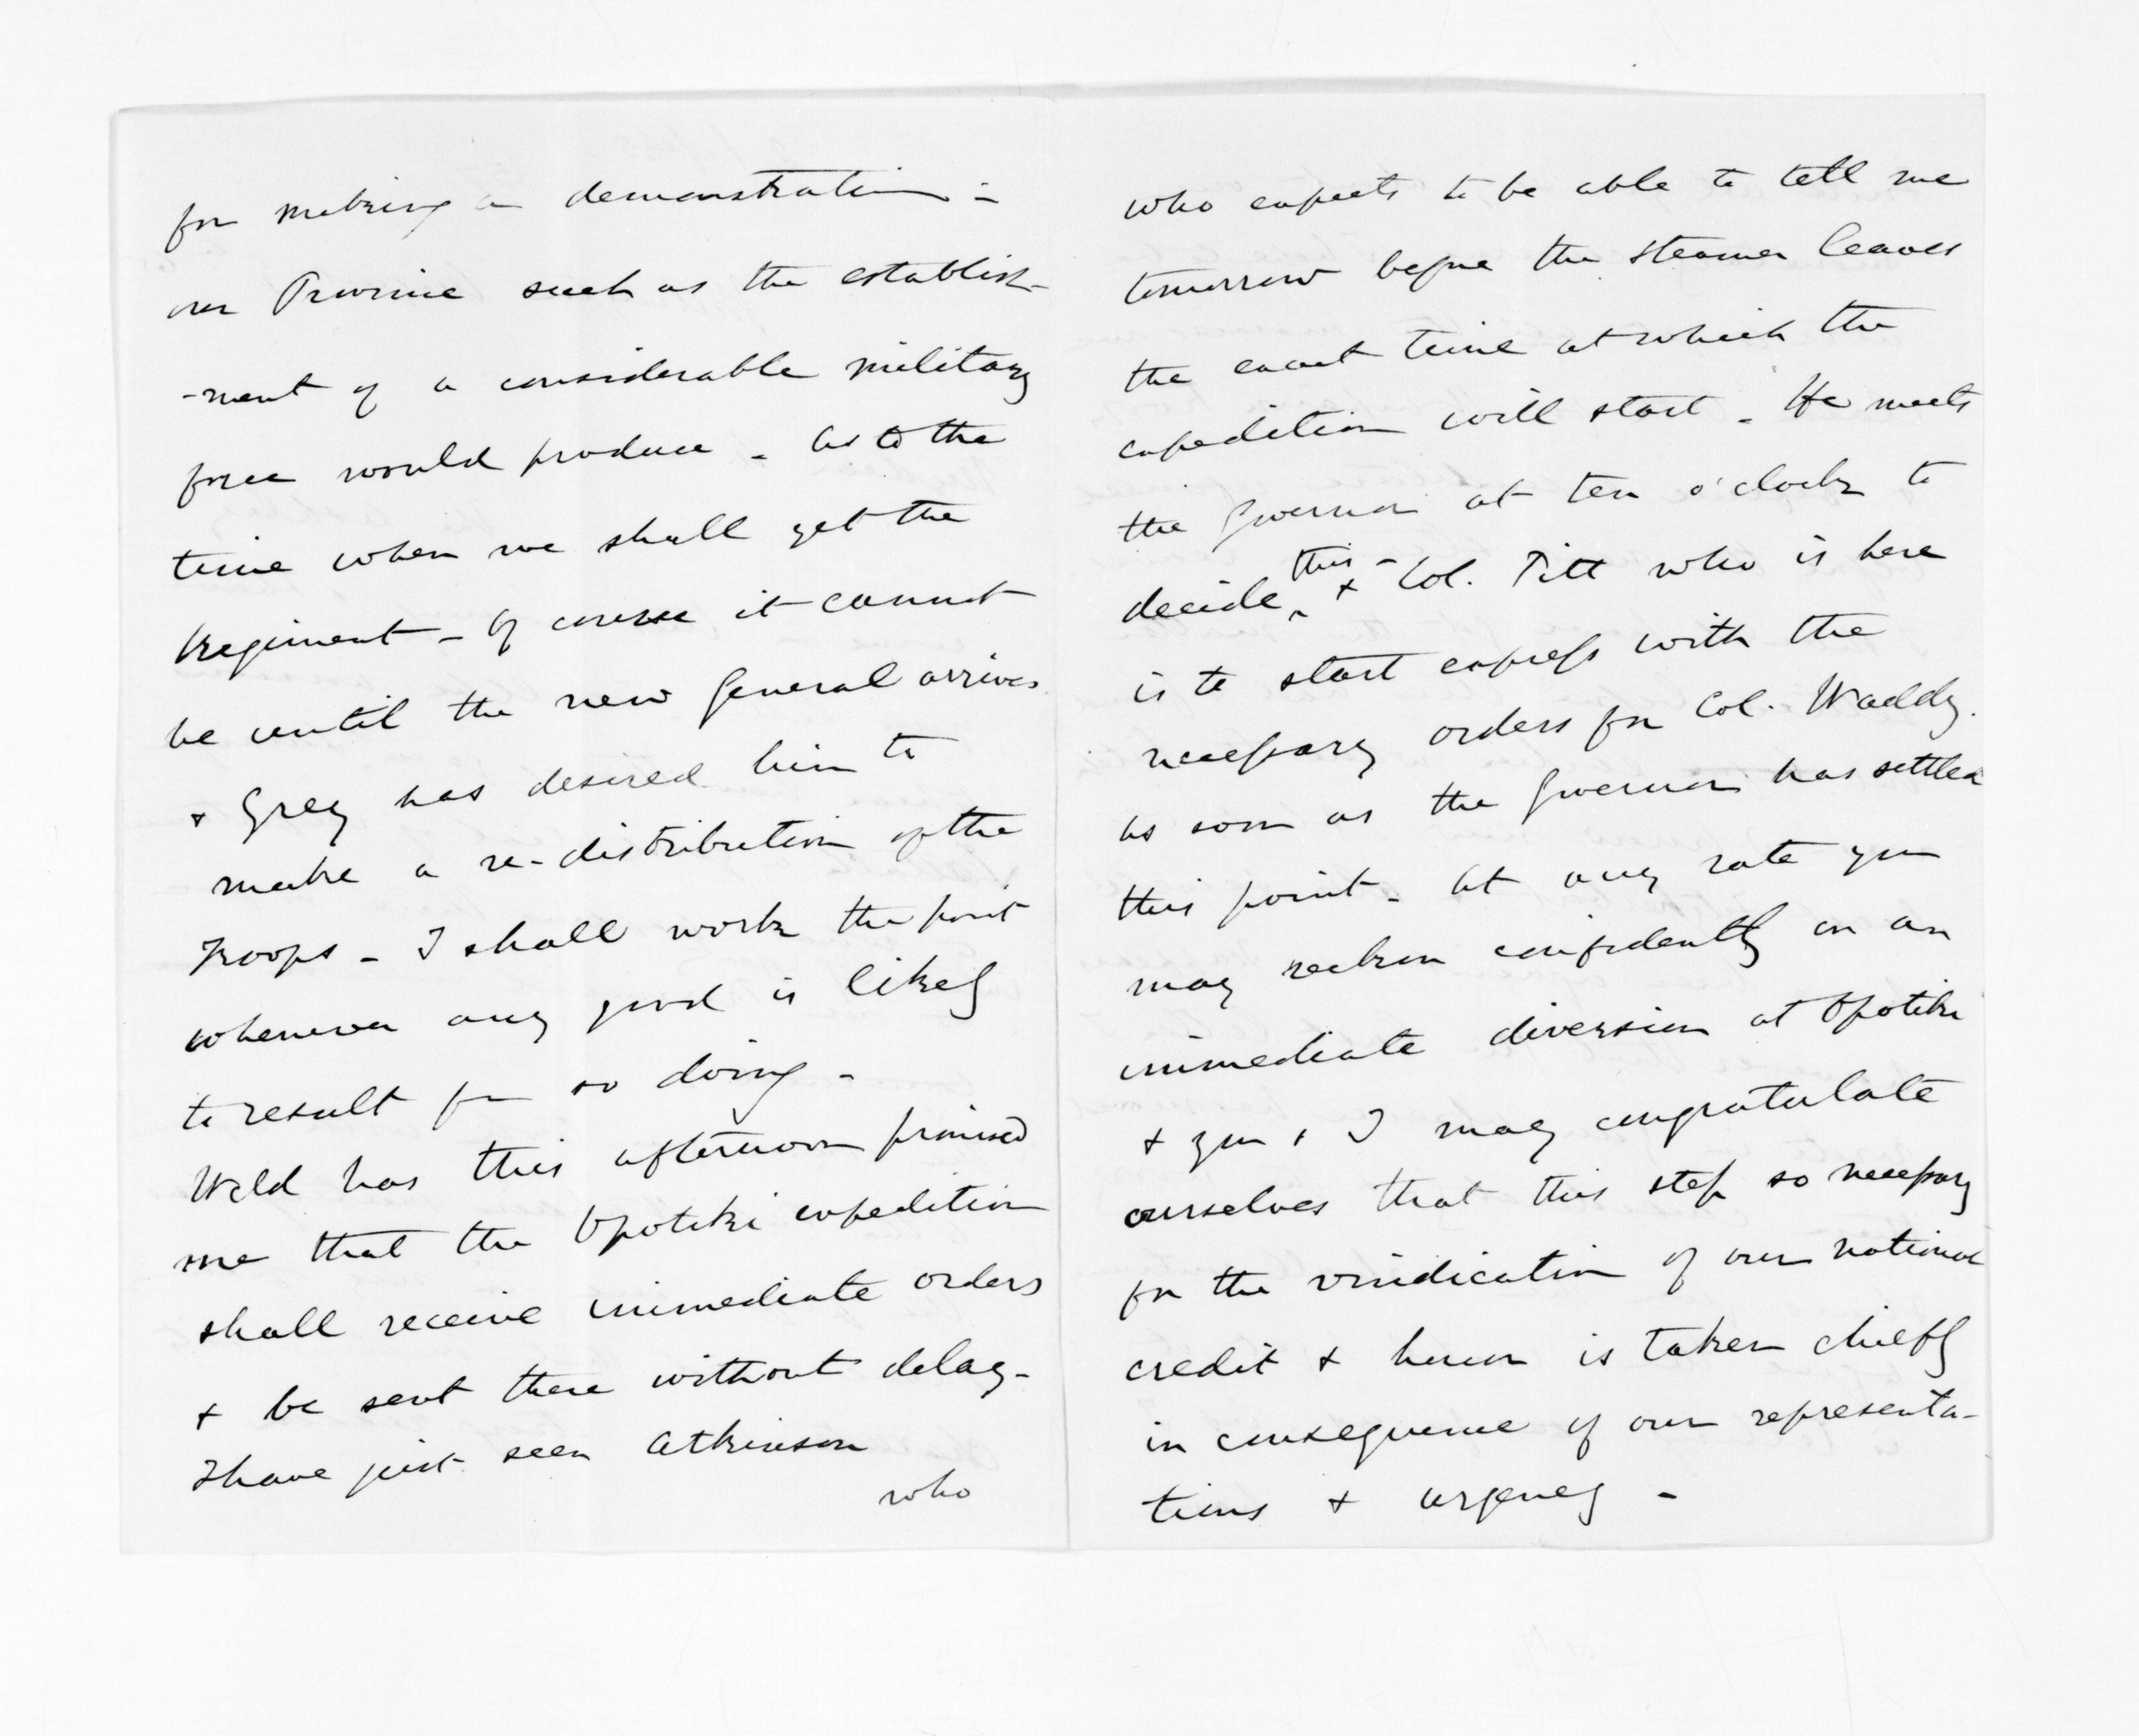 for making a demonstration -
our Province such as the establish-
-ment of a considerable military
force would produce - As to the
time when we shall get the
Regiment - Of course it cannot
be until the new General arrives
& Grey has desired him to
make a re-distribution of the
troops - I shall work the point
whenever any good is likely
to result from so doing -
Weld has this afternoon promised
me that the Opotiki expedition
shall receive immediate orders
& be sent there without delay -
I have just seen Atkinson
who
who expects to be able to tell me
tomorrow before the steamer leaves
the exact time at which the
expedition will start - He meets
the Governor at ten o'clock to
decide this - & Col. Pitt who is here
is to start express with the
necessary orders for Col. Waddy.
as soon as the Governor has settled
this point - At any rate you
may reckon confidently on an
immediate diversion at Opotiki
& you & I may congratulate
ourselves that this step so necessary
for the vindication of our national
credit & honor is taken chiefly
in consequence of our representa-
tions & urgency -